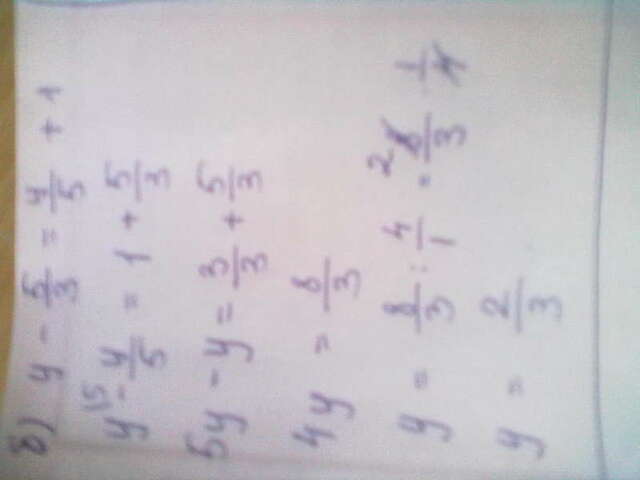 б) y - 5/3 = y/5 + 1
y^15 - y/5 = 1 + 5/3
5y - y = 3/3 + 5/3
4y = 8/3
y = 8/3 : 4/1 = ²8/3 · 1/4
y = 2/3